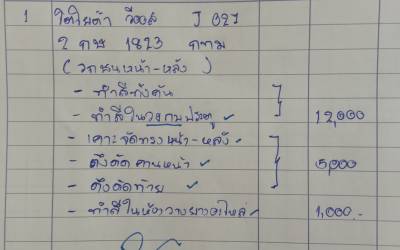 1 โตโยต้า วีออส J 027
2 กษ 1823 กทม
(รถชนหน้า-หลัง)
- ทำสีทั้งคัน
- ทำสีในวงกบประตู ✓ 12,000
- เคาะจัดทรงหน้า-หลัง ✓
- ดึงดัดคานหน้า ✓ 5,000
- ดึงดัดท้าย ✓
- ทำสีในห้องวางยางอะไหล่ ✓ 1,000.-